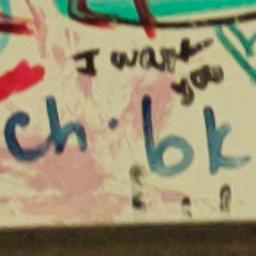 I want
you
ch.bk